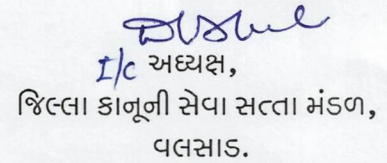 I/c અધ્યક્ષ,
જિલ્લા કાનૂની સેવા સત્તા મંડળ,
વલસાડ.